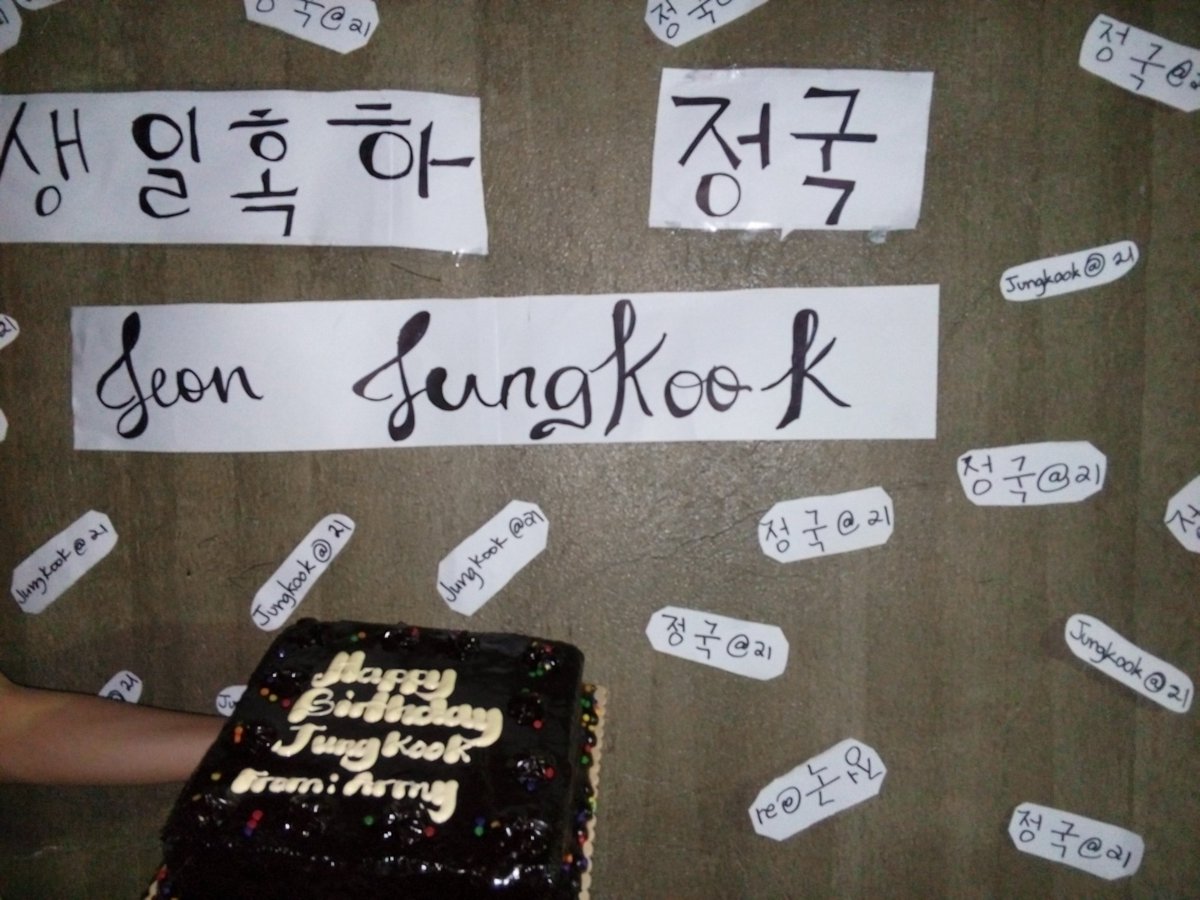 정국@21
정국@21
생일혹하 정국
Jungkook@21
Jeon Jungkook
정국@21
정국@21
Jungkook@21
Jungkook@21
Jungkook@21
정국@21
Jungkook@21
Happy
Birthday
Jungkook
From: Army
정국@21
정국@21